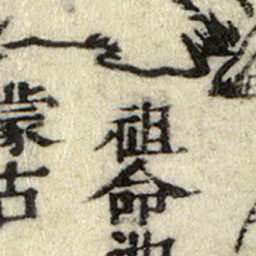 祖命
蒙古